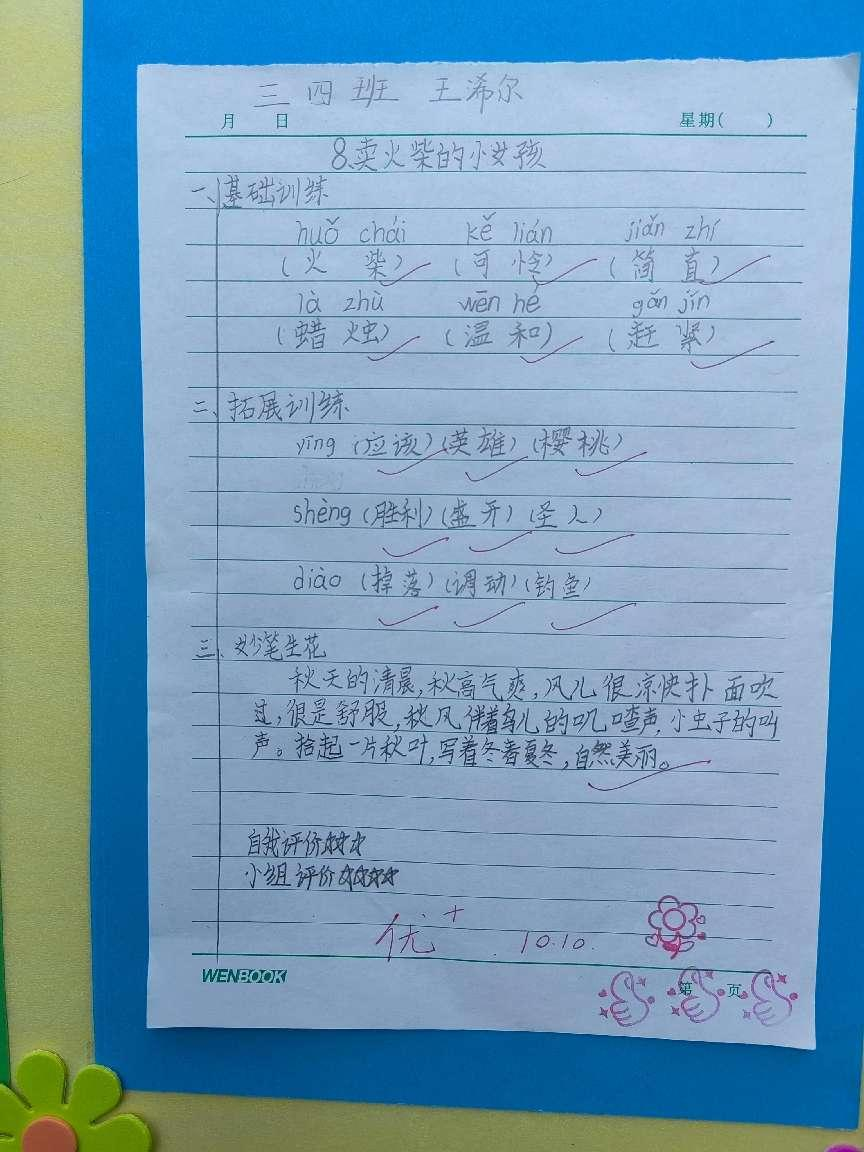 三 四 班 王浠尔
月 日 星期( )
8、卖火柴的小女孩
一、基础训练
huǒ chái kě lián jiǎn zhí
(火 柴) (可 怜) (简 直)
là zhú wēn hé gǎn jǐn
(蜡 烛) (温 和) (赶 紧)
二、拓展训练
yīng (应该)(英雄)(樱桃)
shèng (胜利)(盛开)(圣人)
diào (掉落)(调动)(钓鱼)
三、妙笔生花
秋天的清晨,秋高气爽,风儿很凉快扑面吹
过,很是舒服,秋风伴着鸟儿的叽喳声,小虫子的叫
声。拾起一片秋叶,写着冬春夏冬,自然美丽。
自我评价☆☆☆
小组评价☆☆☆☆
优+ 10.10.
WENBOOK 第 页